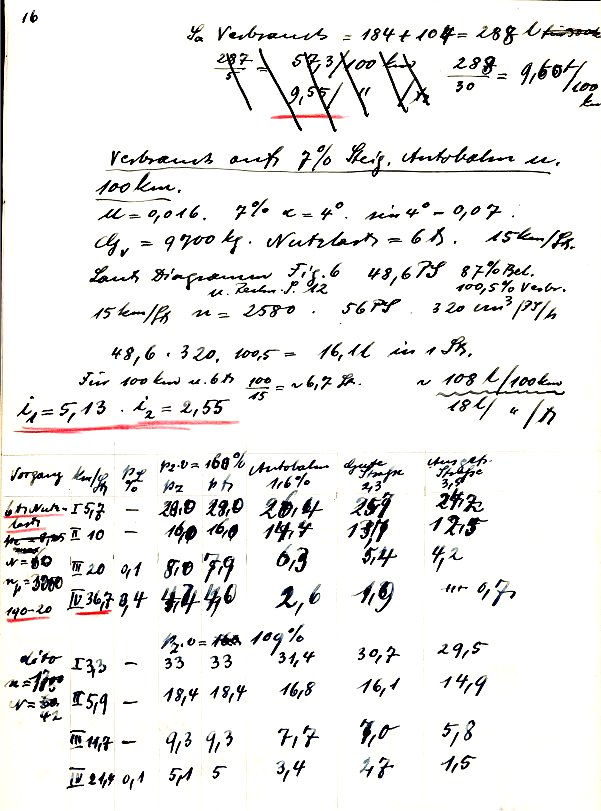 16
Sa Verbrauch = 184 + 104 = 288 l
287/5 = 57,3/100 km
288/30 = 9,60 l/100 km
9,55/ "
Verbrauch auf 7% Steig. Autobahn u.
100 km.
µ = 0,016. 7% α = 4° sin 4° – 0,07.
Gv = 9700 kg. Nutzlast = 6 to. 15 km/Std.
Laut Diagramm Fig. 6 48,6 PS 87% Bel.
u. Rechn. S. 12 100,5% Verbr.
15 km/Std n = 2580 . 56 PS . 320 cm³/PS/h
48,6 . 320 . 100,5 = 16,1 l in 1 Std.
Für 100 km u. 6 to 100/15 = ~ 6,7 Std. ~ 108 l/100 km
i₁ = 5,13 . i₂ = 2,55 18 l/ " /to
Vorgang km/Std % pz.v = 160% Autobahn Gute Straße
pz 1,6% 2,3
6 to Nutzlast I 5,7 – 28,0 28,0 26,4 25,7 24,2
II 10 – 16,0 16,0 14,4 13,7 12,5
III 20 0,1 8,0 7,9 6,3 5,4 4,2
190-20 IV 36,7 0,4 2,6 1,9 0,7
pz.v = 109%
dito I 3,3 – 33 33 31,4 30,7 29,5
II 5,9 – 18,4 18,4 16,8 16,1 14,9
42
III 11,7 – 9,3 9,3 7,7 7,0 5,8
IV 21,4 0,1 5,1 5 3,4 2,7 1,5